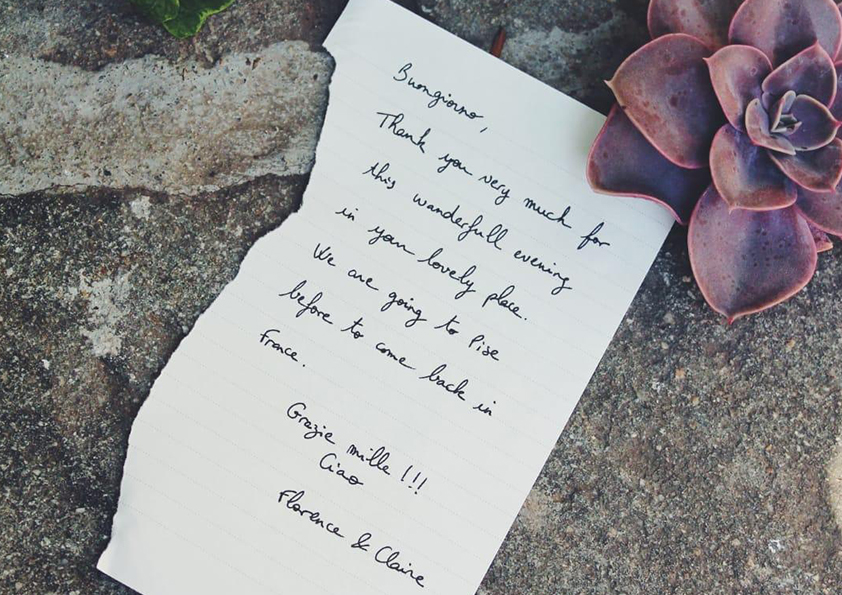 Buongiorno,
Thank you very much for
this wanderfull evening
in your lovely place.
We are going to Pise
before to come back in
France.
Grazie mille !!!
Ciao
Florence & Claire